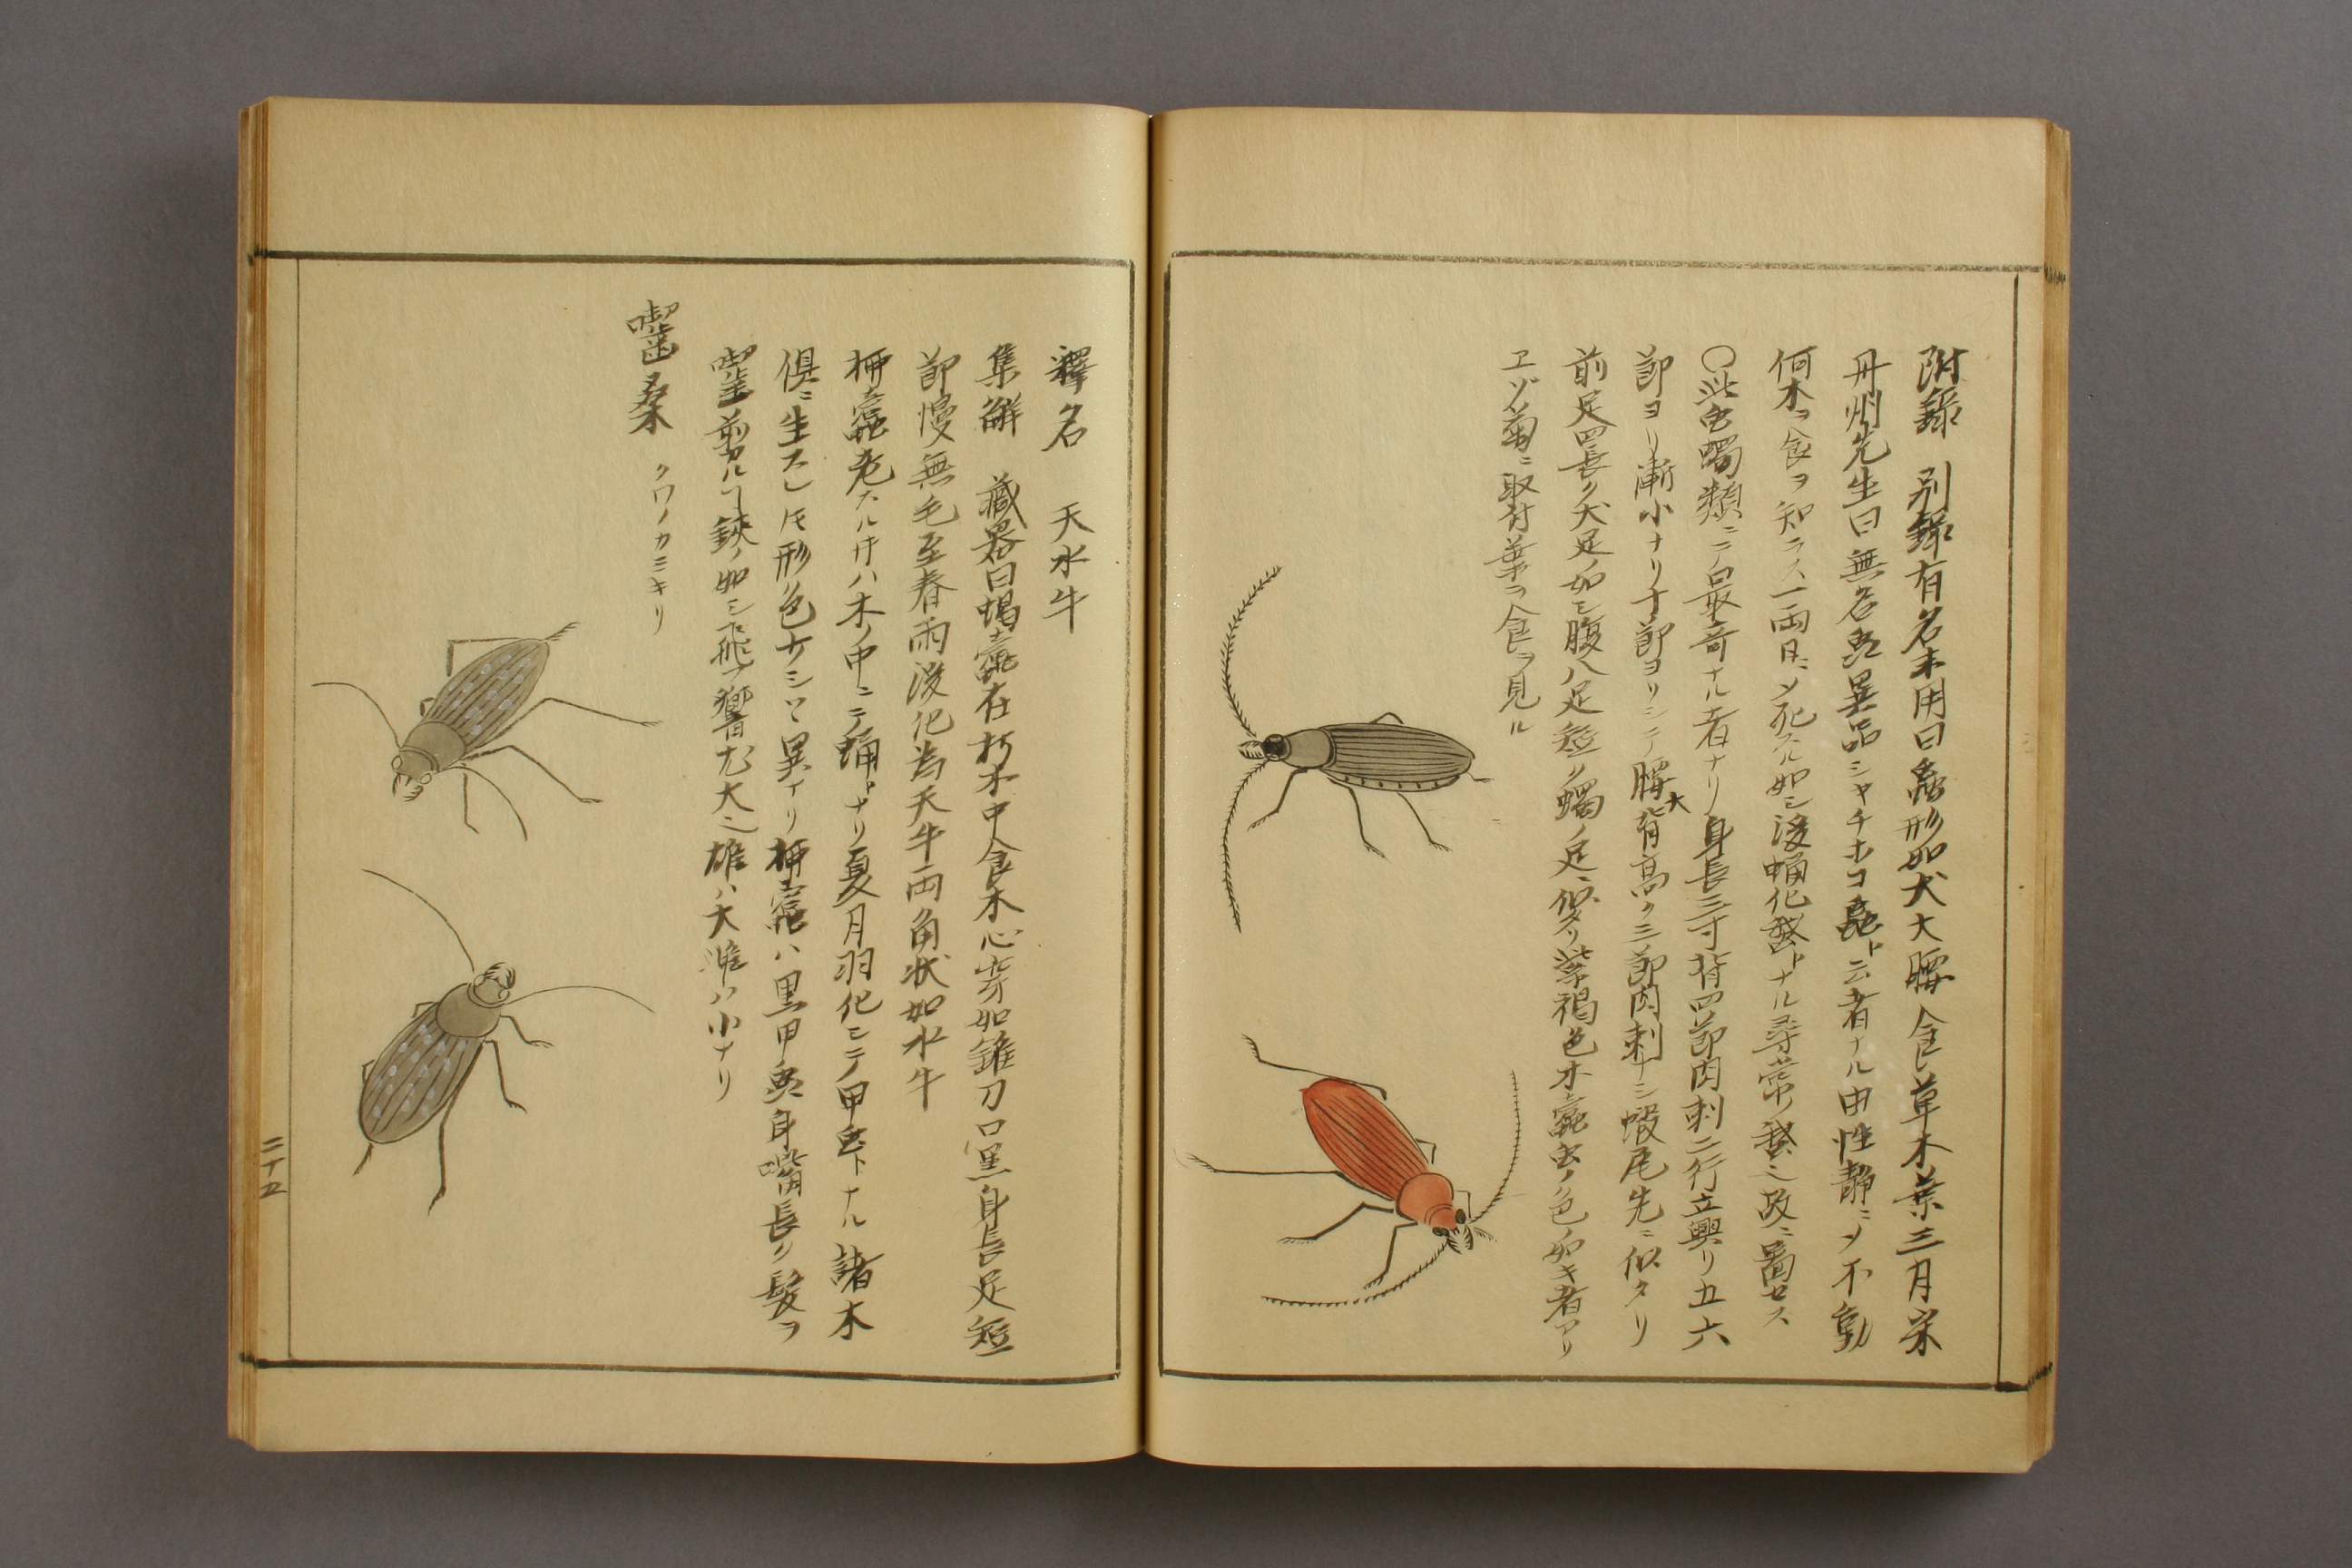 附録 別録有名未用曰蟲形如犬大腰食草木葉三月采
丹州先生曰無名蟲異品シヤチホコ蟲ト云者ナル由性静ニメ不動
何木ヲ食ヲ知ラス一両日ニメ死タル如シ後蛹化シ蛾トナル尋常ノ蛾之故ニ圖セス
〇此虫蠋類ニテ最奇ナル者ナリ身長三寸背四節肉刺二行立興リ五六
節ヨリ漸小ナリ十節ヨリシテ腰大背高ク三節肉刺ナシ蝦尾先ニ似タリ
前足四長ク犬足ノ如シ腹八足短ク蠋ノ足ニ似タリ紫褐色木蠧虫ノ色ノ如キ者アリ
ヱゾ菊ニ取付葉ヲ食ヲ見ル
釋名 天水牛
集解 藏器曰蝎蠧在朽木中食木心穿如錐刀口黒身長足短
節慢無毛至春雨後化為天牛両角状如水牛
柳蠧老タル件ハ木ノ中ニテ蛹トナリ夏月羽化シテ甲虫トナル諸木
倶ニ生スレ𪜈形色少シツヽ異ナリ柳蠧ハ黒甲 身嘴長ク髪ヲ
囓剪ルヿ鋏ノ如シ飛フ響尤大之雄ハ大雌ハ小ナリ
囓桑 クワノカミキリ
二十五